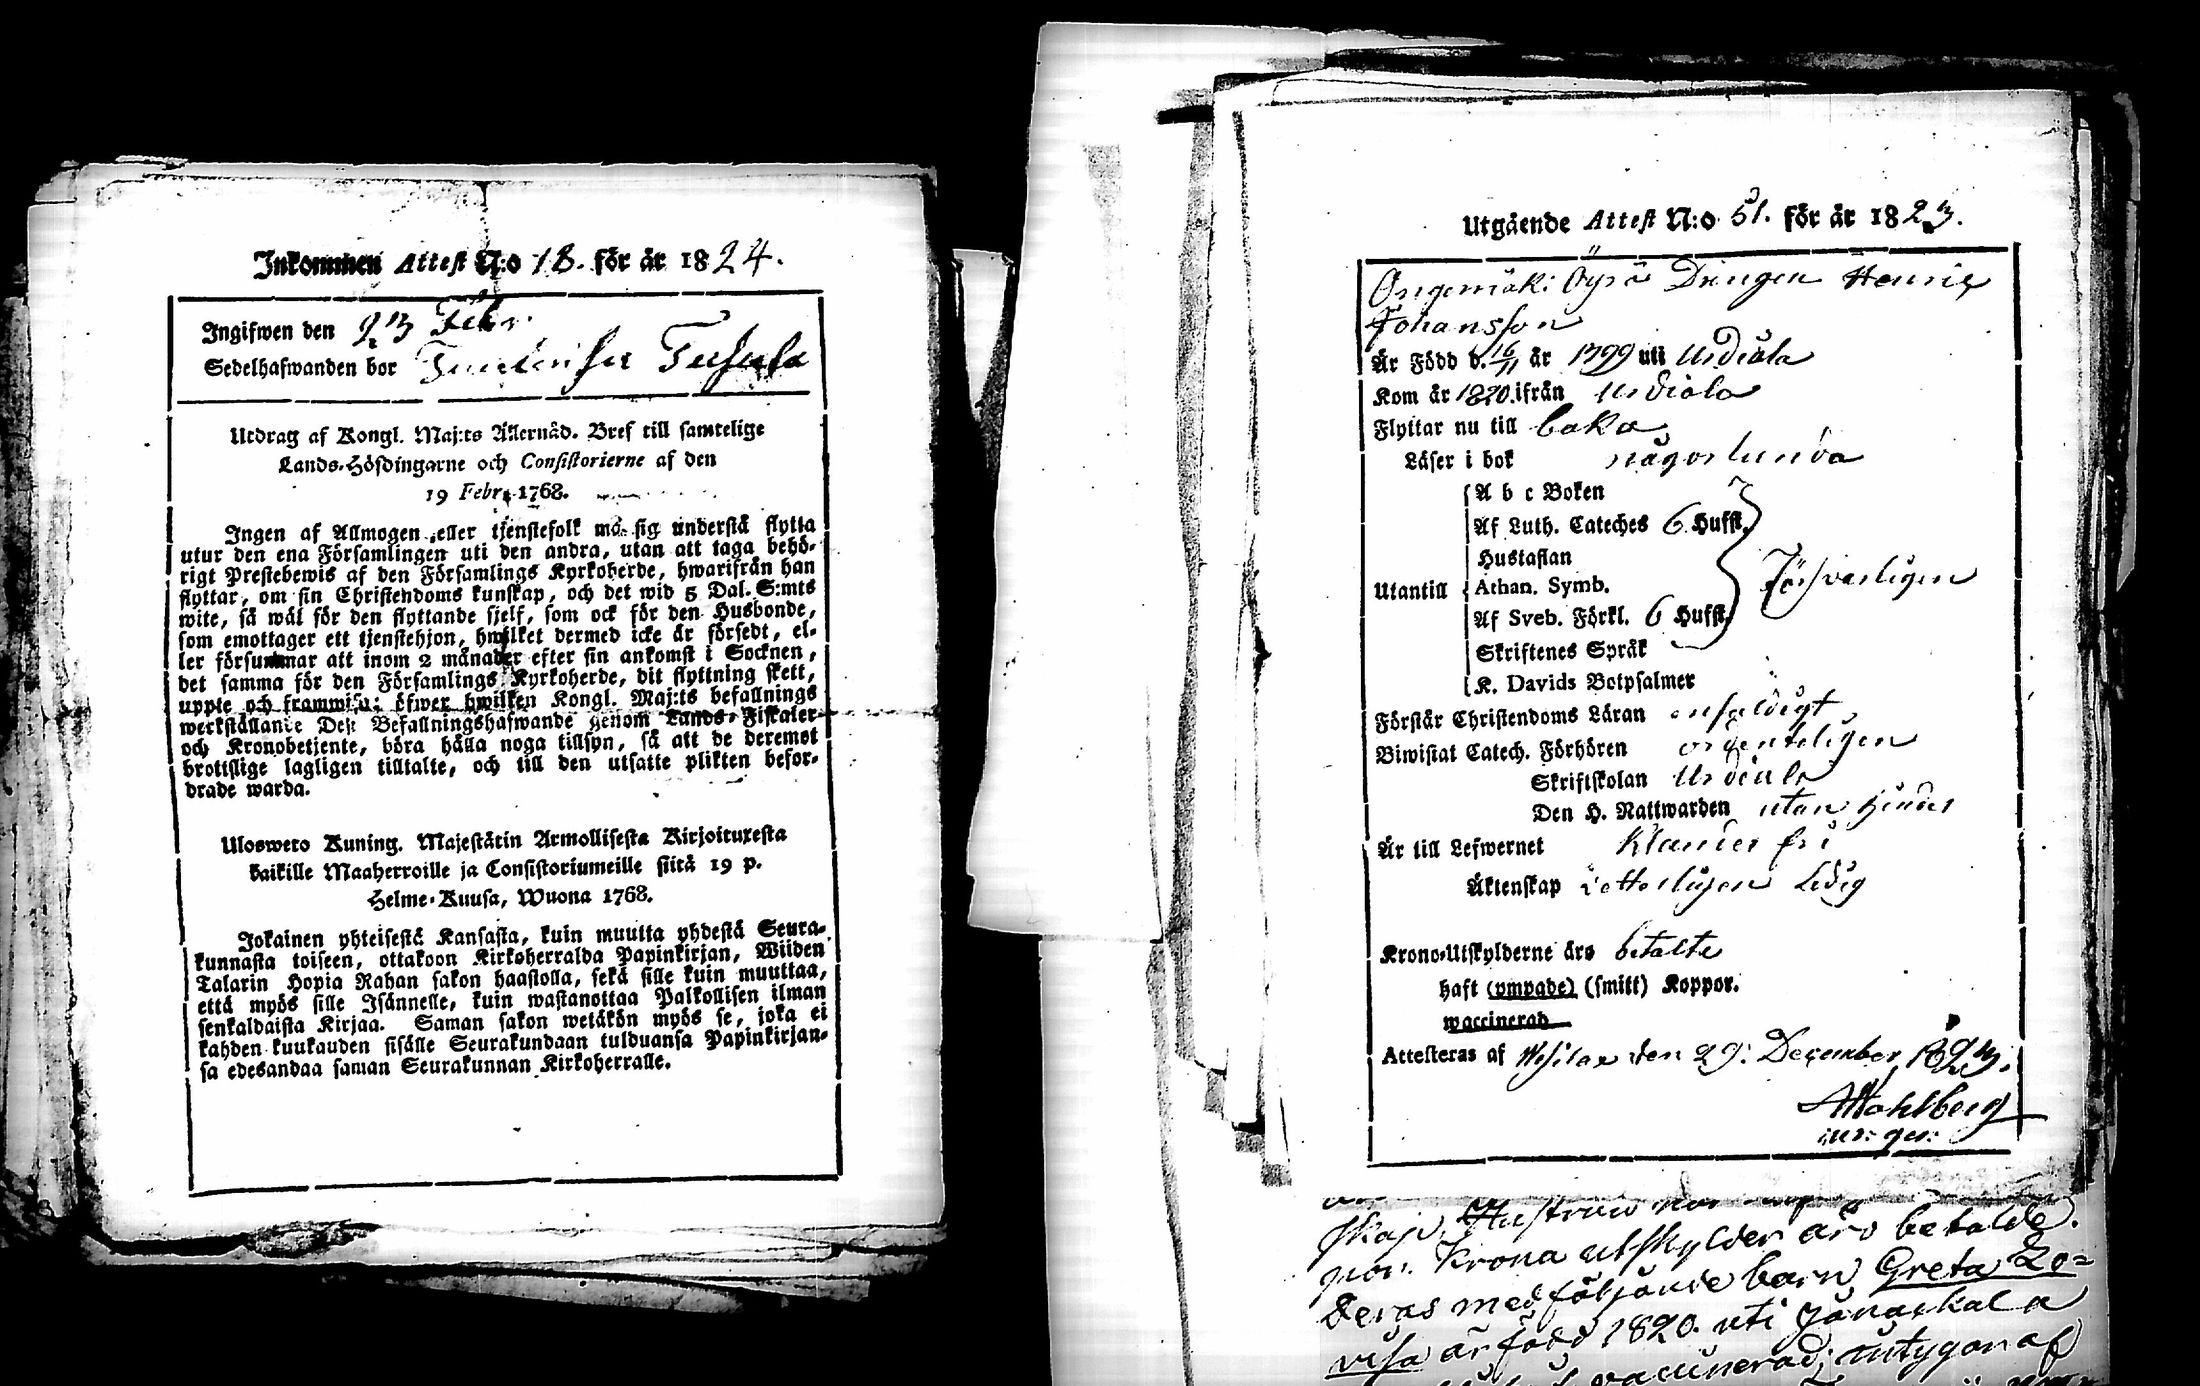 Inkommen Attest N:o 18. för år 1824.
Ingifwen den 23 Febr.
Sedelhafwanden bor
Utdrag af Kongl. Maj:ts Allernåd. Bref till samtelige
Lands-Höfdingarne och Consistorierne af den
19 Febr. 1768.
Ingen af Allmogen eller tjenstefolk må sig understå flytta
utur den ena Församlingen uti den andra, utan att taga behö-
rigt Prestebewis af den Församlings Kyrkoherde, hwarifrån han
flyttar, om sin Christendoms kunskap, och det wid 5 Dal. S:mts
wite, så wäl för den flyttande sjelf, som ock för den Husbonde,
som emottager ett tjenstehjon, hwilket dermed icke är försedt, el-
ler försummar att inom 2 månader efter sin ankomst i Socknen,
det samma för den Församlings Kyrkoherde, dit flyttning skett,
uppte och framwisa; öfwer hwilken Kongl. Maj:ts befallnings
werkställande Dess Befallningshafwande genom Lands-Fiskaler
och Kronobetjente, böra hålla noga tillsyn, så att de deremot
brottslige lagligen tilltalte, och till den utsatte plikten befor-
drade warda.
Ulosweto Kuning. Majestätin Armollisesta Kirjoituxesta
kaikille Maaherroille ja Consistoriumeille siitä 19 p.
Helme-Kuusa, Wuona 1768.
Jokainen yhteisestä Kansasta, kuin muutta yhdestä Seura-
kunnasta toiseen, ottakoon Kirkoherralda Papinkirjan, Wiiden
Talarin Hopia Rahan sakon haastolla, sekä sille kuin muuttaa,
että myös sille Isännelle, kuin wastanottaa Palkollisen ilman
senkaldaista Kirjaa. Saman sakon wetäkön myös se, joka ei
kahden kuukauden sisälle Seurakundaan tulduansa Papinkirjan-
sa edesandaa saman Seurakunnan Kirkoherralle.
Utgående Attest N:o 51. för år 1823.
Öyrö Drängen Henric
Johansson
Är Född d. 16/11 år 1799 uti Urdiala
Kom år 1820. ifrån Urdiala
Flyttar nu till baka
Läser i bok någorlunda
A b c Boken
Af Luth. Cateches 6 Hufst.
Hustaflan
Utantill Athan. Symb. Försvarligen
Af Sveb. Förkl. 6 Hufst.
Skriftenes Språk
K. Davids Botpsalmer
Förstår Christendoms Läran enfaldigt
Biwistat Catech. Förhören ordenteligen
Skriftskolan Urdiala
Den H. Nattwarden utan hinder
Är till Lefwernet klander fri
Äktenskap ledig
Krono-Utskylderne äro betalte
haft (ympade) (smitt) Koppor.
waccinerad
Attesteras af Wesilax den 29. December 1823.
A Wahlberg
skap, Hustrun
por. Krona utskylder äro betalde.
Deras medföljande barn Greta Lo-
visa är född 1820. uti Janackala
vaccinerad; intygar af